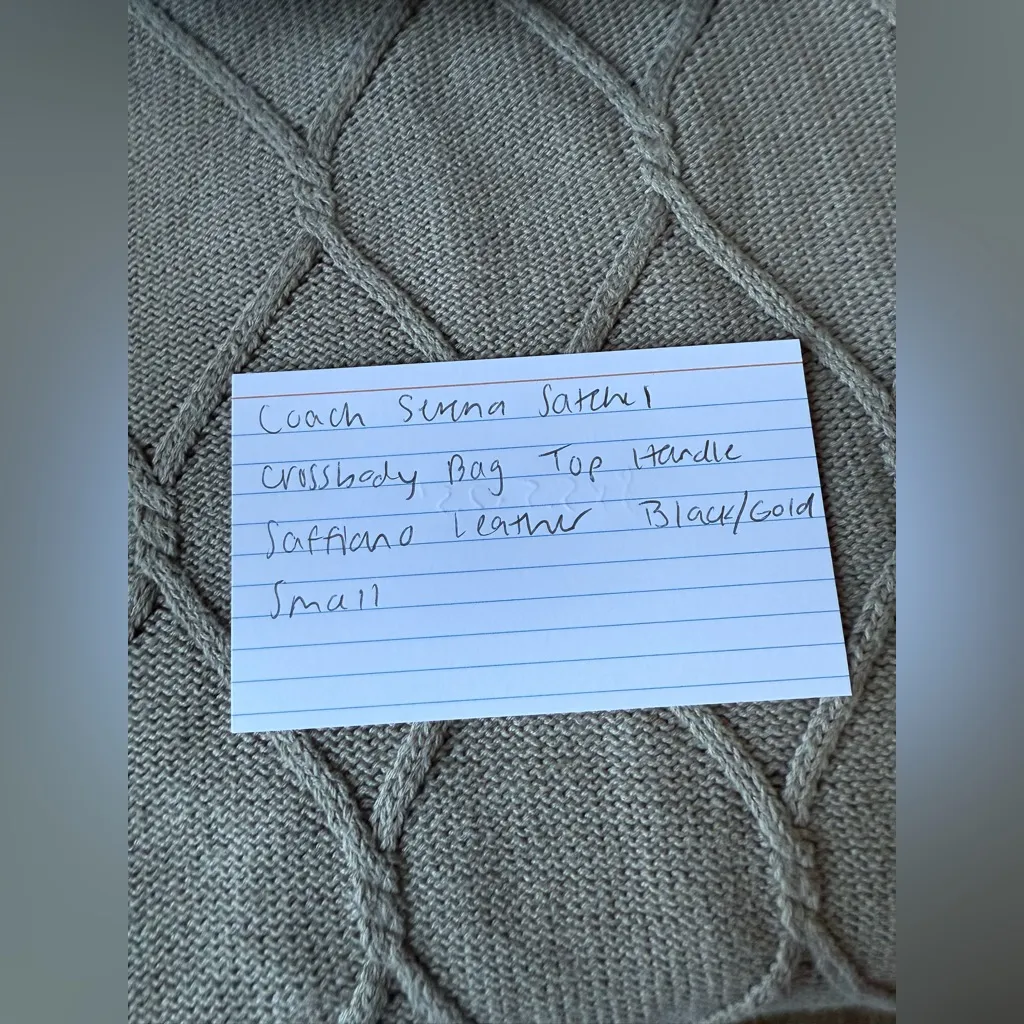 Coach Serena Satchel
Crossbody Bag Top Handle
Saffiano Leather Black/Gold
Small